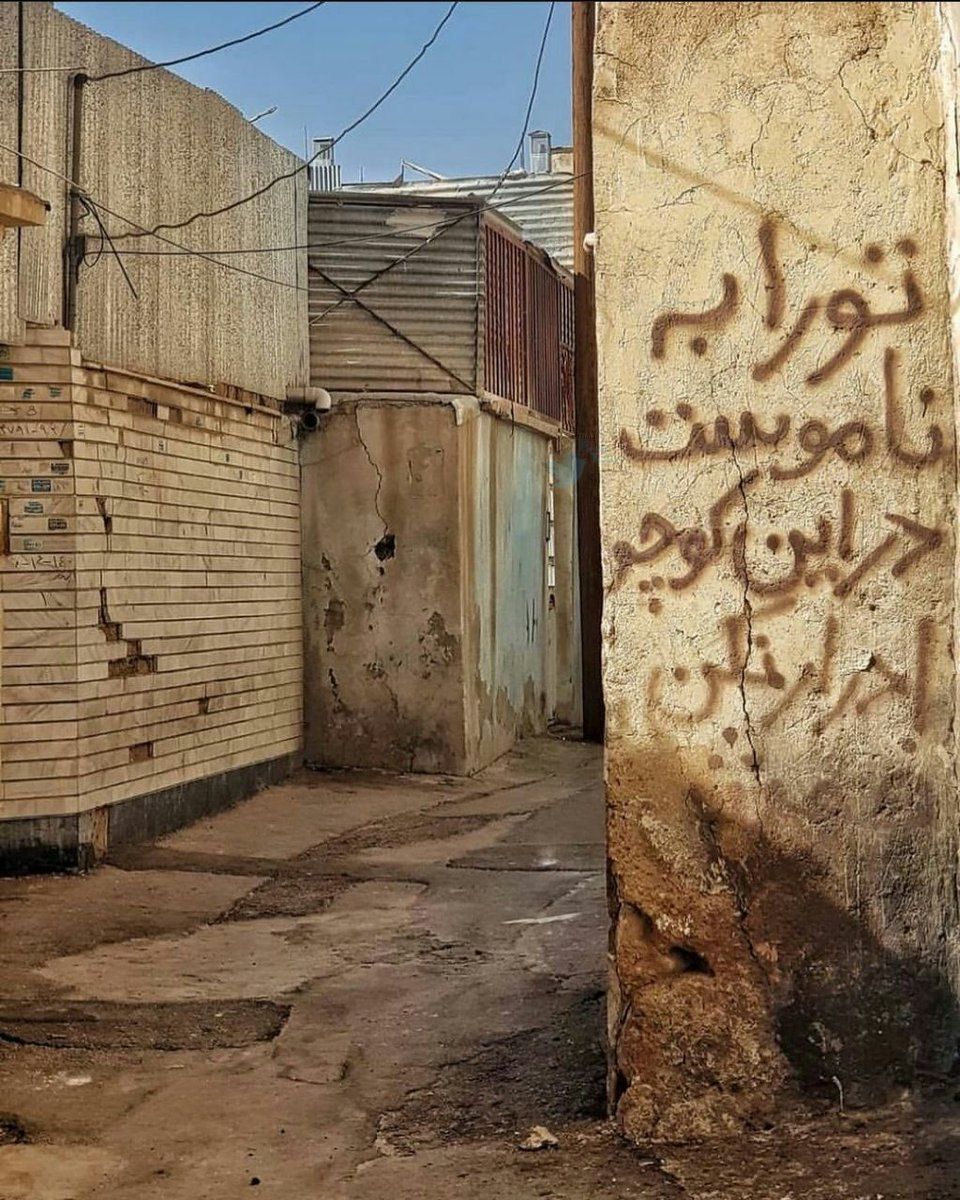 تورا به
ناموست
در این کوچه
ادرار نکن